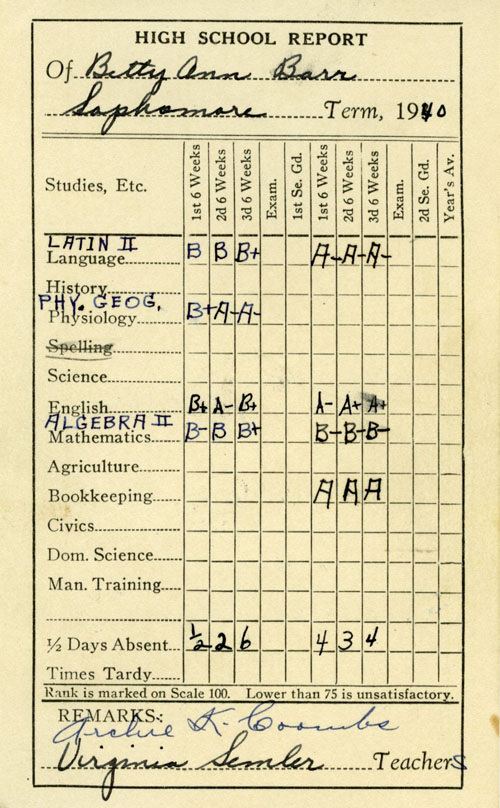 HIGH SCHOOL REPORT
Of Betty Ann Barr
Sophomore Term, 1940
Studies, Etc. 1st 6 Weeks 2d 6 Weeks 3d 6 Weeks Exam. 1st Se. Gd. 1st 6 Weeks 2d 6 Weeks 3d 6 Weeks Exam. 2d Se. Gd. Year's Av.
LATIN II
Language B B B+ A- A- A-
History
PHY. GEOG.
Physiology B+ A- A-
Spelling
Science
English B+ A- B+ A- A+ A+
ALGEBRA II
Mathematics B- B B+ B- B- B-
Agriculture
Bookkeeping A A A
Civics
Dom. Science
Man. Training
½ Days Absent ½ 2 6 4 3 4
Times Tardy
Rank is marked on Scale 100. Lower than 75 is unsatisfactory.
REMARKS:
Archie K. Coombs
Virginia Semler Teachers